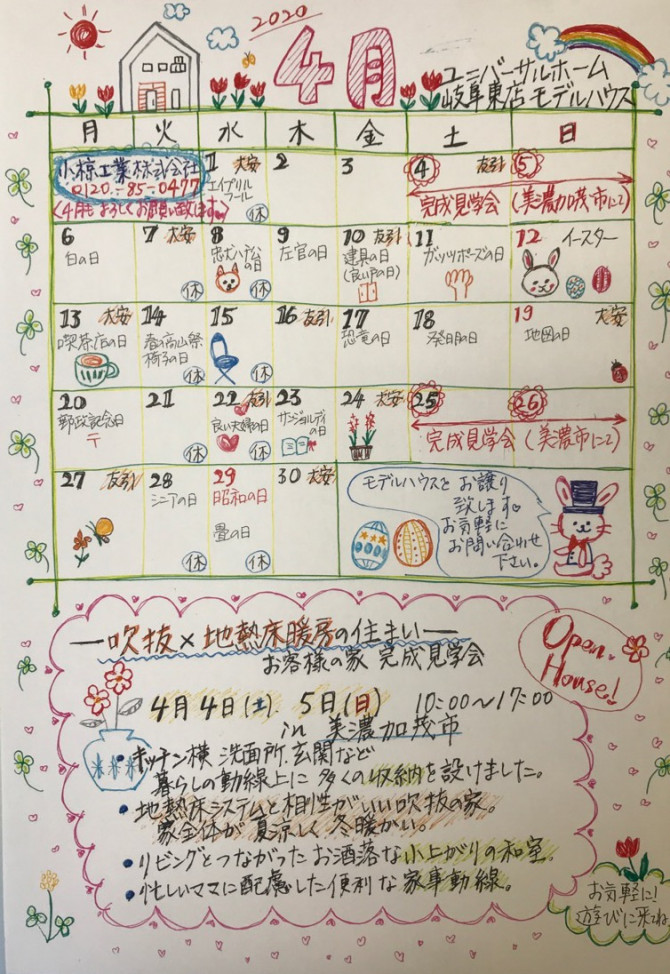 2020
4月
ユニバーサルホーム
岐阜東店 モデルハウス
月 火 水 木 金 土 日
小椋工業株式会社
0120-85-0477
4月もよろしくお願い致します。
1 大安
エイプリル
フール
休
2
3
4 友引
5
完成見学会 (美濃加茂市にて)
6
白の日
7 大安
休
8
忠犬ハチ公
の日
休
9
左官の日
10 友引
建具の日
(良い戸の日)
11
ガッツポーズの日
12 イースター
13 大安
喫茶店の日
14
春の高山祭
椅子の日
休
15
休
16 友引
17
恐竜の日
18
発明の日
19 大安
地図の日
20
郵政記念日
〒
21
休
22 友引
良い夫婦の日
休
23
サンジョルディ
の日
24 大安
25
26
完成見学会 (美濃市にて)
27 友引
28
シニアの日
休
29
昭和の日
畳の日
休
30 大安
モデルハウスを お譲り
致します。
お気軽に
お問い合わせ
下さい。
吹抜×地熱床暖房の住まい
お客様の家 完成見学会
Open
House!
4月4日(土). 5日(日) 10:00〜17:00
in 美濃加茂市
・キッチン横 洗面所.玄関など
暮らしの動線上に 多くの収納を設けました。
・地熱床システムと相性がいい吹抜の家。
家全体が夏涼しく冬暖かい。
・リビングとつながったお洒落な小上がりの和室。
・忙しいママに配慮した便利な家事動線。
お気軽に!
遊びに来てね